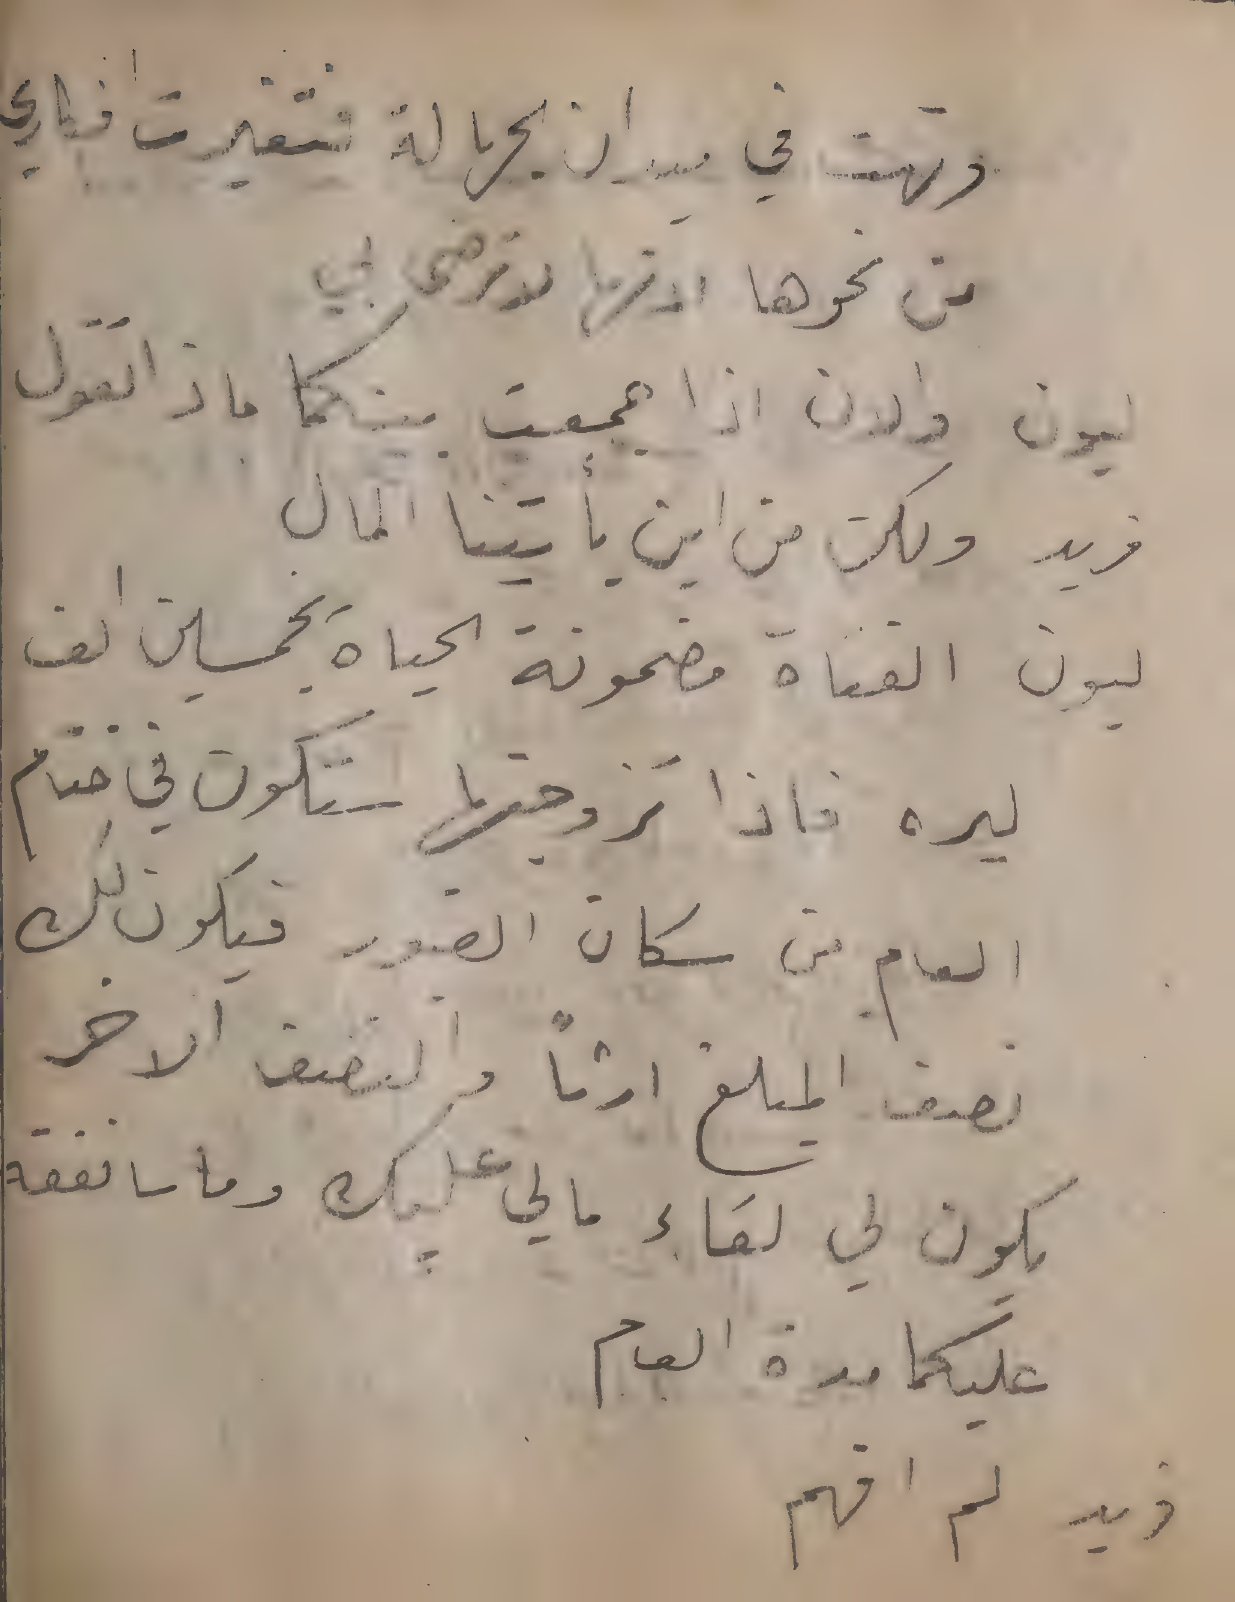 وتهت في ميدان الجهالة فتغيرت افكاري
من نحوها لانها لا ترضى بي
ليون والان اذا جمعت بينكما ماذا تقول
فريد ولكن من اين يأتينا المال
ليون الفتاة مضمونة الحياة بخمسين الف
ليره فاذا تزوجتها ستكون في ختام
العام من سكان القبور فيكون لك
نصف المبلغ ارثاً والنصف الاخر
يكون لي لقاء مالي عليك وما سانفقه
عليكما مدة العام
فريد لم افهم